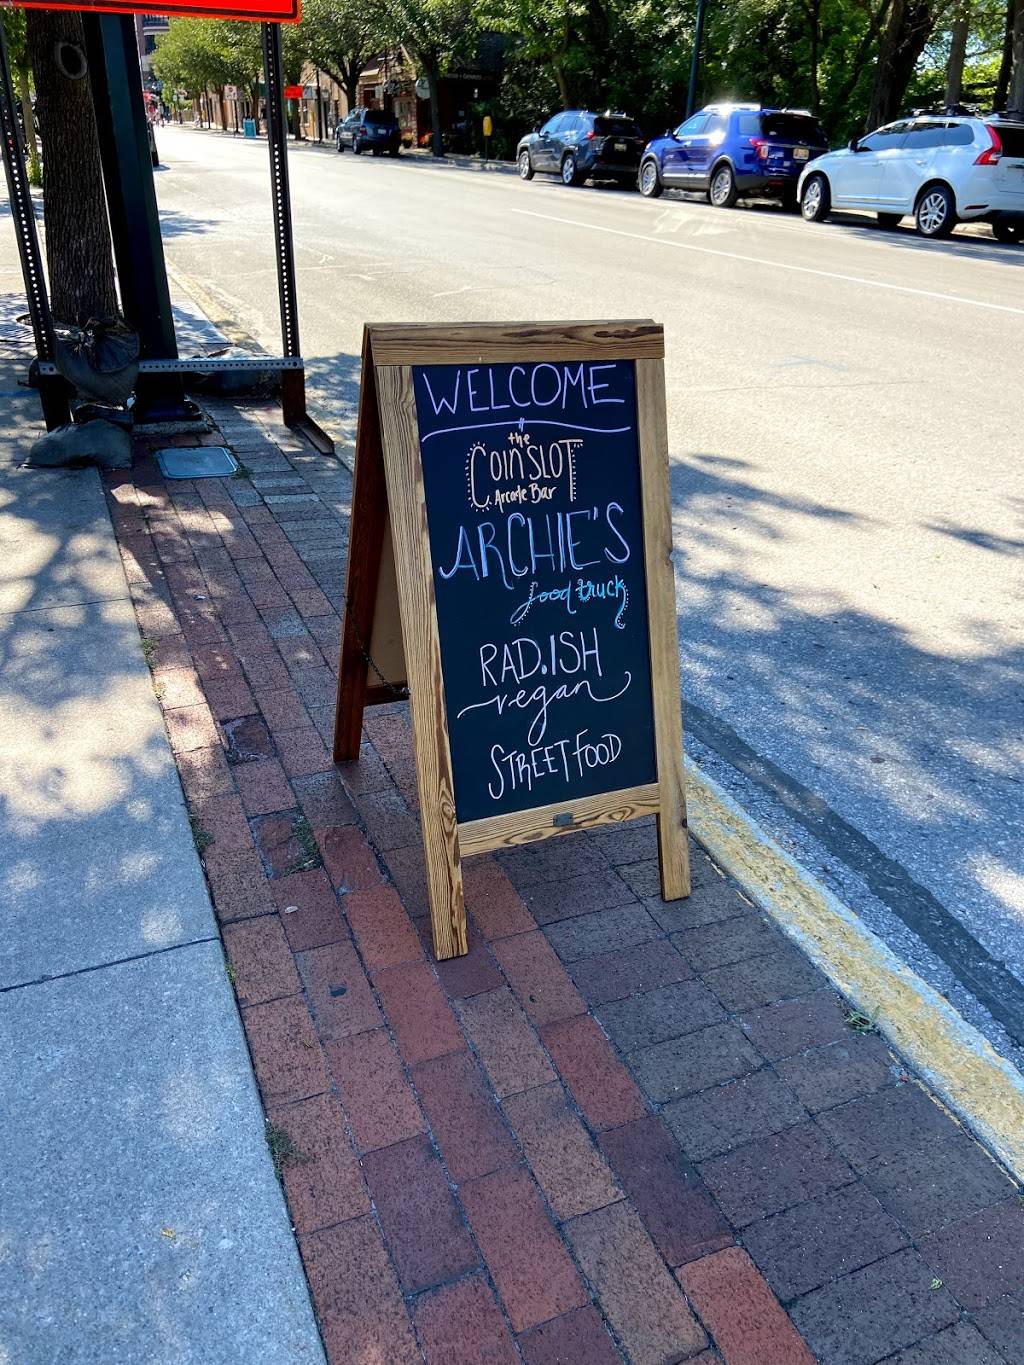 WELCOME
the
COIN SLOT
Arcade Bar
ARCHIE'S
food truck
RAD.ISH
vegan
STREET FOOD